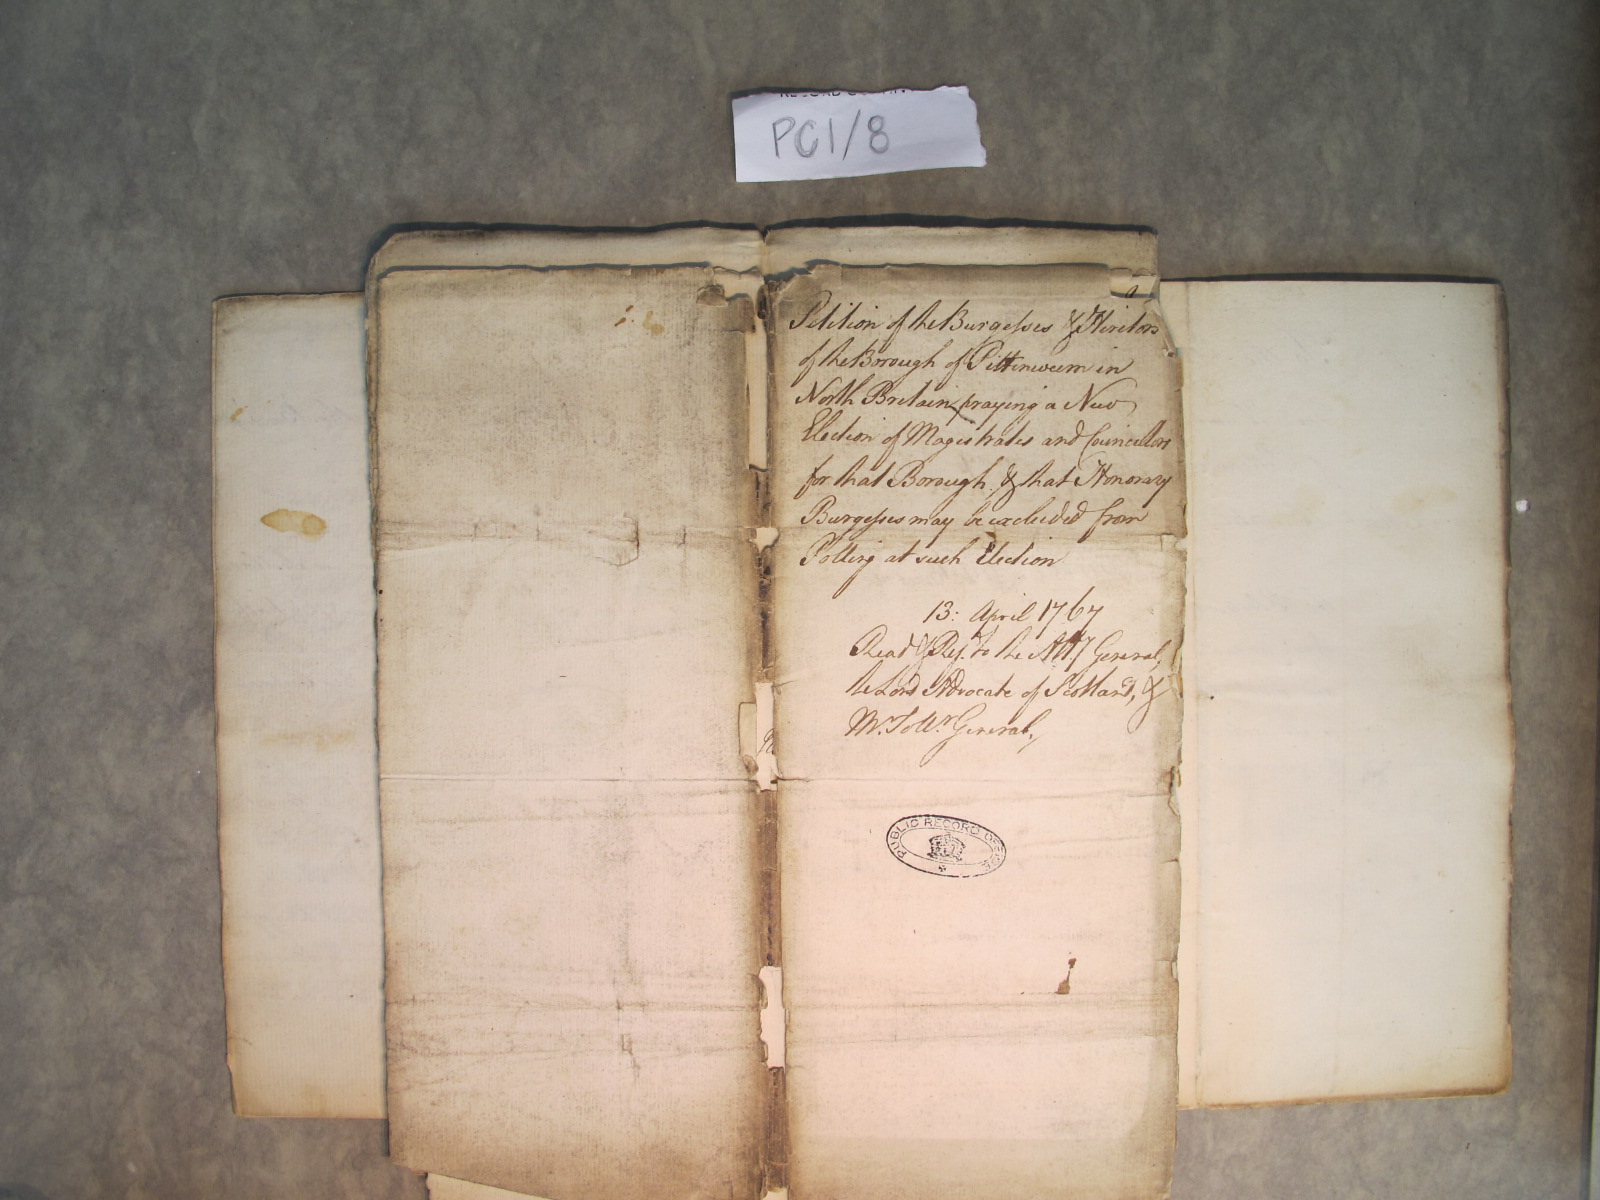 PC1/8
Petition of the Burgesses & Heritors
of the Borough of Pittenweem in
North Britain, praying a New
Election of Magistrates and Councillors
for that Borough, & that Honorary
Burgesses may be excluded from
Polling at such Election
13: April 1767
Read & Ref. to the Att.y General,
the Lord Advocate of Scotland, &
Mr. Sollr. General,
PUBLIC RECORD OFFICE